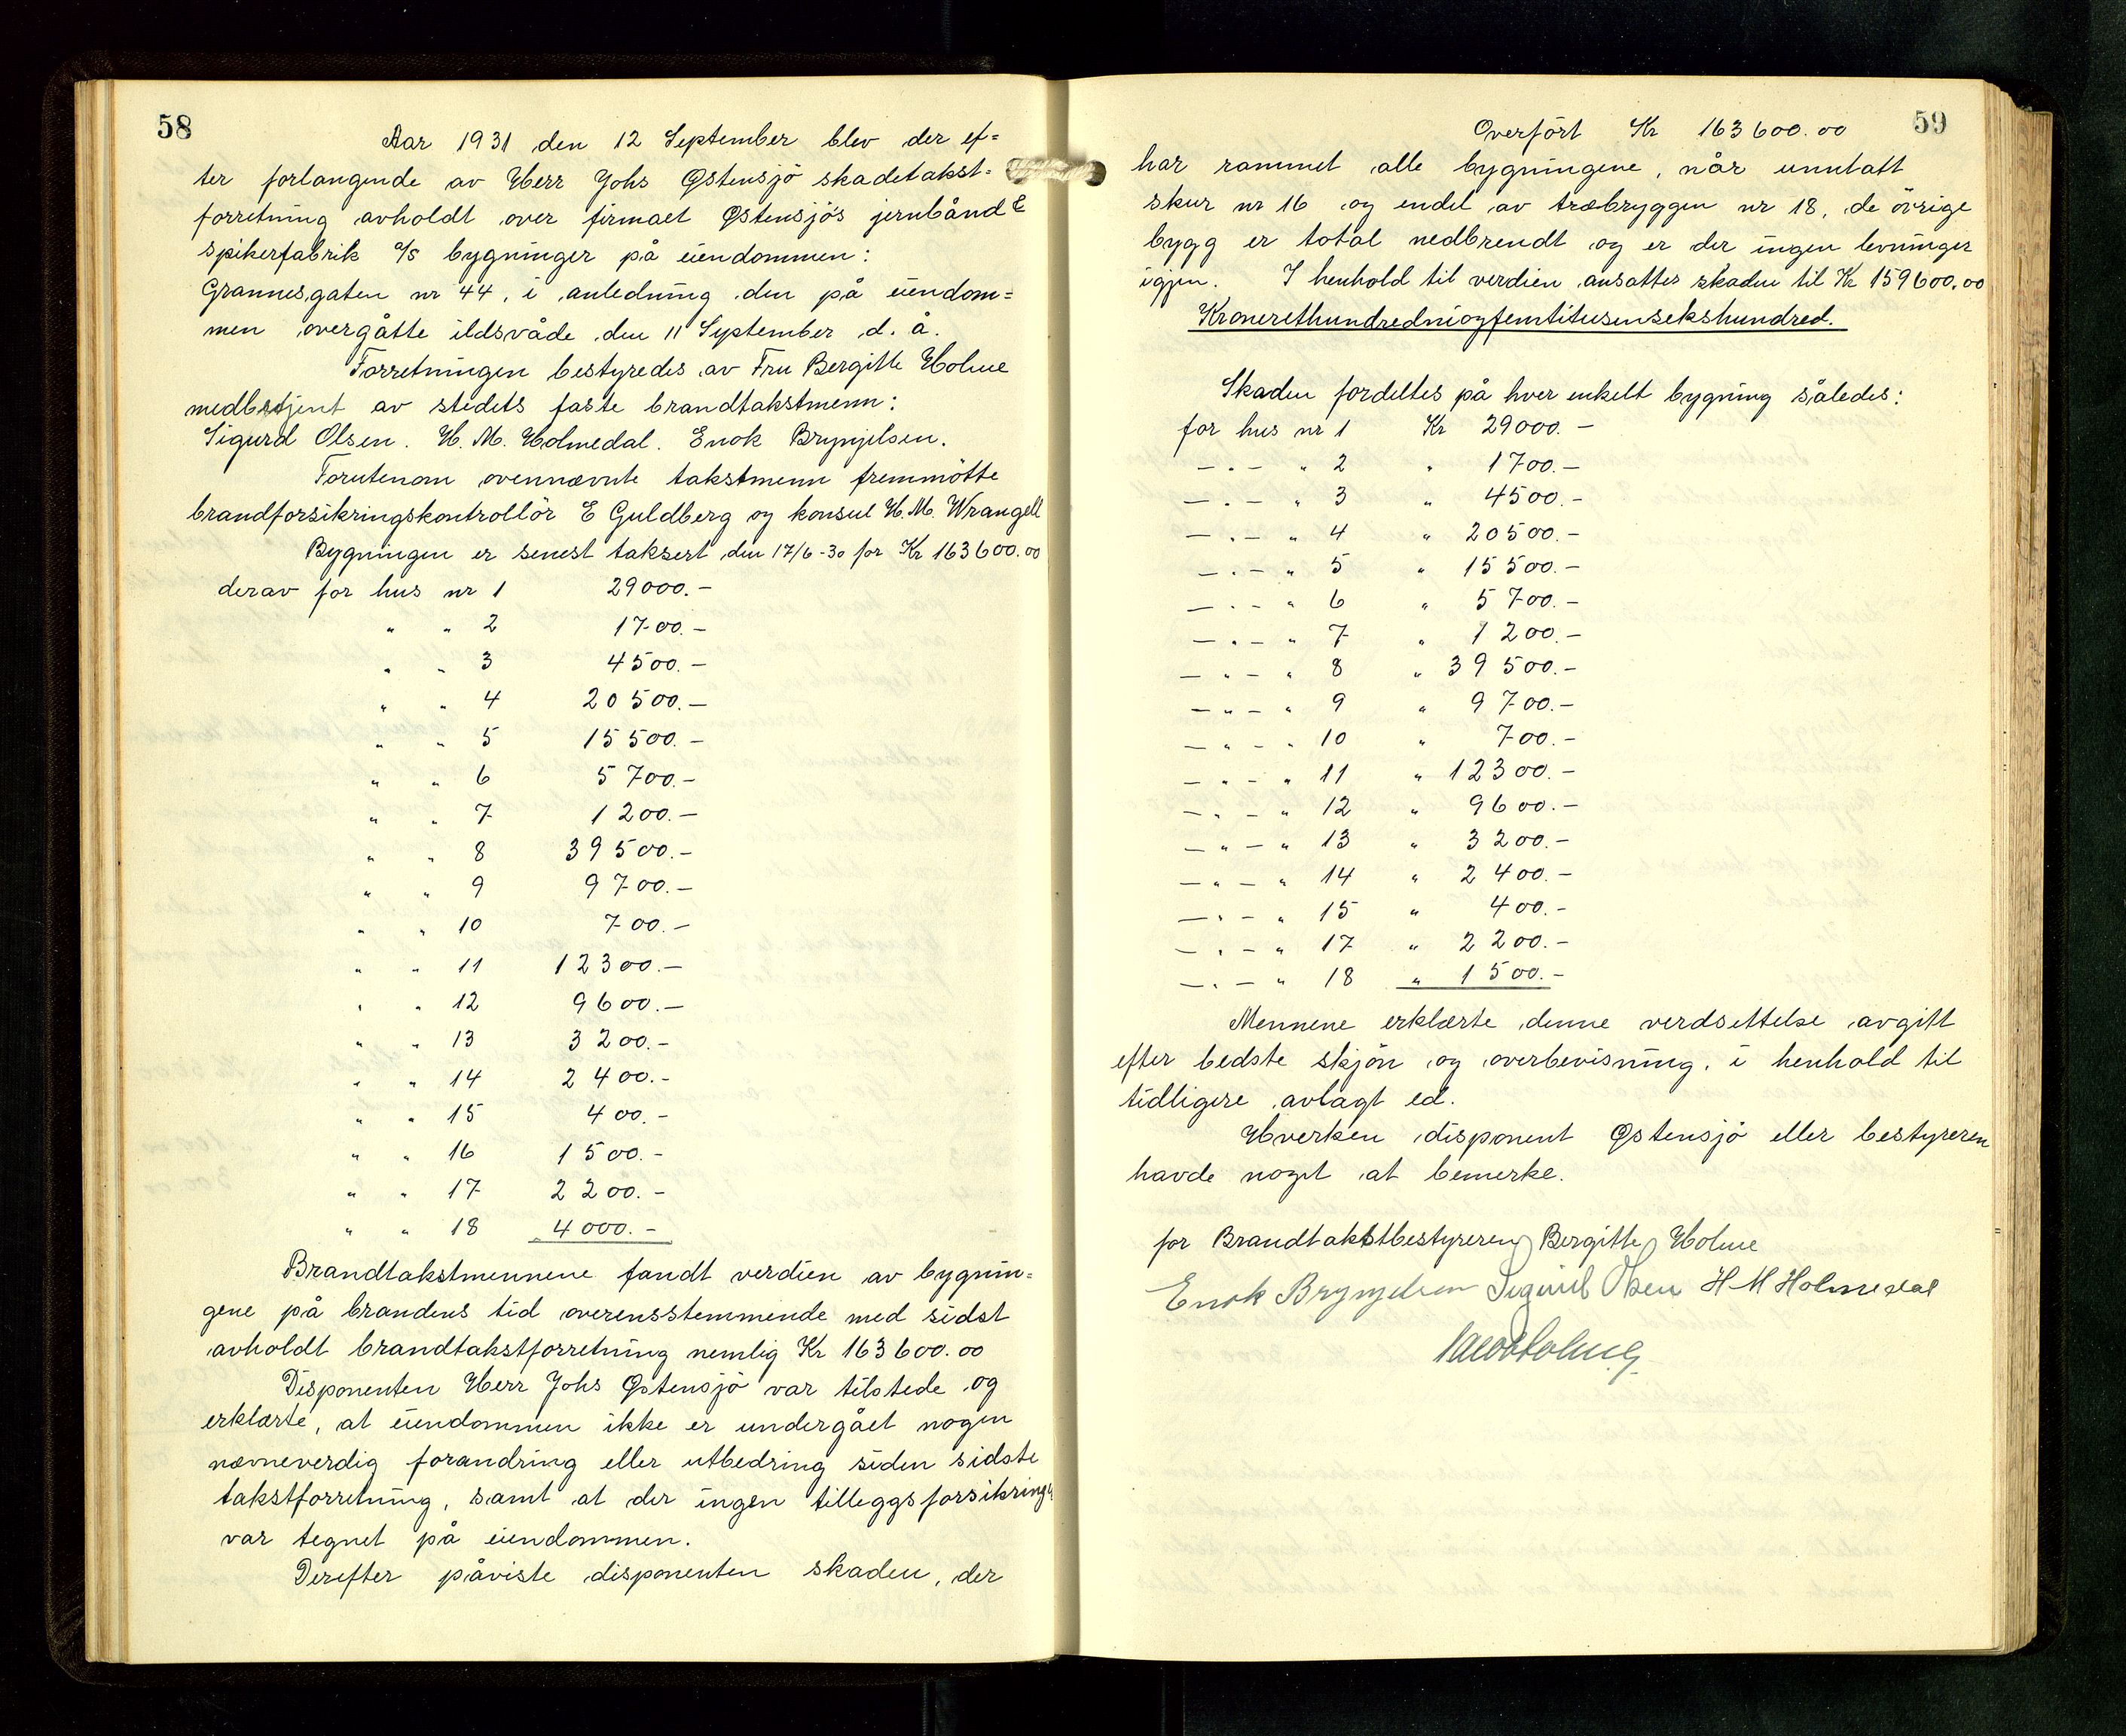 58
Aar 1931 den 12 September blev der ef=
ter forlangende av Herr Johs Østensjö skadetakst=
forretning avholdt over firmaet Østensjö's jernbånd &
spikerfabrik a/s bygninger på eiendommen:
Grannesgaten nr 44, i anledning den på eiendom=
men overgåtte ildsvåde den 11 September d. å.
Forretningen bestyredes av Fru Bergitte Holme
medbetjent av stedets faste brandtakstmenn:
Sigurd Olsen. H. M. Holmedal. Enok Brynjelsen.
Forutenom ovennævnte takstmenn fremmötte
brandforsikringskontrollör E Guldberg og konsul H. M. Wrangell
Bygningen er senest taksert den 17/6-30 for Kr 163600.00
derav for hus nr 1 29000.-
" " 2 1700.-
" " 3 4500.-
" " 4 20500.-
" " 5 15500.-
" " 6 5700.-
" " 7 1200.-
" " 8 39500.-
" " 9 9700.-
" " 10 700.-
" " 11 12300.-
" " 12 9600.-
" " 13 3200.-
" " 14 2400.-
" " 15 400.-
" " 16 1500.-
" " 17 2200.-
" " 18 4000.-
Brandtakstmennene fandt verdien av bygnin=
gene på brandens tid overensstemmende med sidst
avholdt brandtakstforretning nemlig Kr 163600.00
Disponenten Herr Johs Østensjö var tilstede og
erklærte, at eiendommen ikke er undergået nogen
nævneverdig forandring eller utbedring siden sidste
takstforretning, samt at der ingen tilleggsforsikring
var tegnet på eiendommen.
Derefter påviste disponenten skaden, der
59
Overfört Kr 163600.00
har rammet alle bygningene, når unntatt
skur nr 16 og endel av træbryggen nr 18, de övrige
bygg er total nedbrendt og er der ingen levninger
igjen. I henhold til verdien ansattes skaden til Kr 159600.00
Kroneretthundredniogfemtitusensekshundred.
Skaden fordeltes på hver enkelt bygning således:
for hus nr 1 Kr 29000.-
- " - " 2 " 1700.-
- " - " 3 " 4500.-
- " - " 4 " 20500.-
- " - " 5 " 15500.-
- " - " 6 " 5700.-
- " - " 7 " 1200.-
- " - " 8 " 39500.-
- " - " 9 " 9700.-
- " - " 10 " 700.-
- " - " 11 " 12300.-
- " - " 12 " 9600.-
- " - " 13 " 3200.-
- " - " 14 " 2400.-
- " - " 15 " 400.-
- " - " 17 " 2200.-
- " - " 18 " 1500.-
Mennene erklærte denne verdsettelse avgitt
efter bedste skjön og overbevisning, i henhold til
tidligere avlagt ed.
Hverken disponent Østensjö eller bestyreren
havde noget at bemerke.
for Brandtakstbestyreren Bergitte Holme
Enok Brynjelsen Sigurd Olsen H M Holmedal